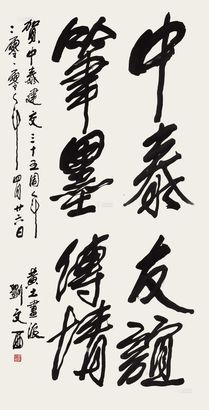 中泰友誼
筆墨傳情
賀中泰建交三十五周年
二零一零年四月廿六日
黃土畫派
劉文西